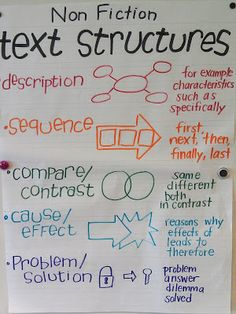 Non Fiction
text structures
description
for example
characteristics
such as
specifically
•sequence
first,
next, then,
finally, last
•compare/
contrast
same
different
both
in contrast
•cause/
effect
reasons why
effects of
leads to
therefore
•Problem/
Solution
problem
answer
dilemma
solved